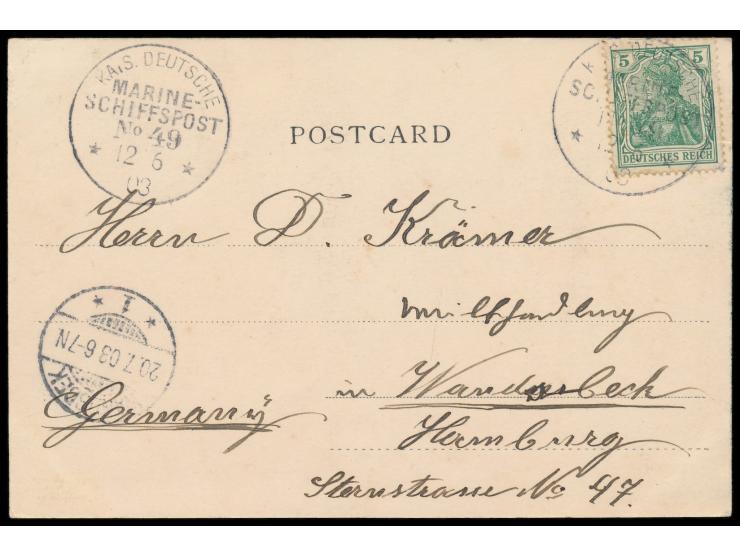 KAIS. DEUTSCHE
MARINE-
SCHIFFSPOST
No 49
12 6
03
5 5
DEUTSCHES REICH
POSTCARD
Herrn D. Krämer
1
20.7.03.6-7N
in Wandsbeck
Germany
Hamburg
Sternstrasse No 47.